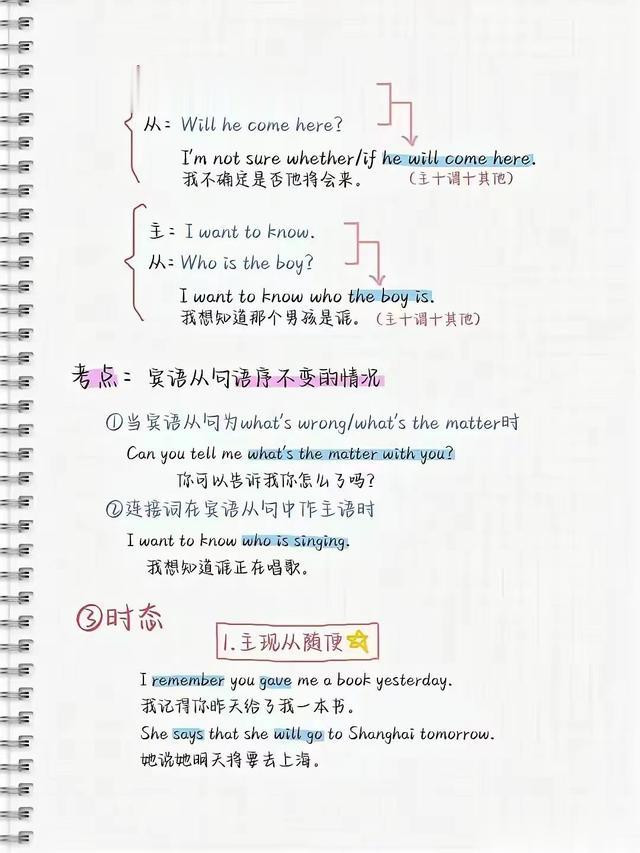 从：Will he come here?
I'm not sure whether/if he will come here.
我不确定是否他将会来。 （主+谓+其他）
主：I want to know.
从：Who is the boy?
I want to know who the boy is.
我想知道那个男孩是谁。（主+谓+其他）
考点：宾语从句语序不变的情况
①当宾语从句为what's wrong/what's the matter时
Can you tell me what's the matter with you?
你可以告诉我你怎么了吗？
②连接词在宾语从句中作主语时
I want to know who is singing.
我想知道谁正在唱歌。
③时态
1.主现从随便
I remember you gave me a book yesterday.
我记得你昨天给了我一本书。
She says that she will go to Shanghai tomorrow.
她说她明天将要去上海。